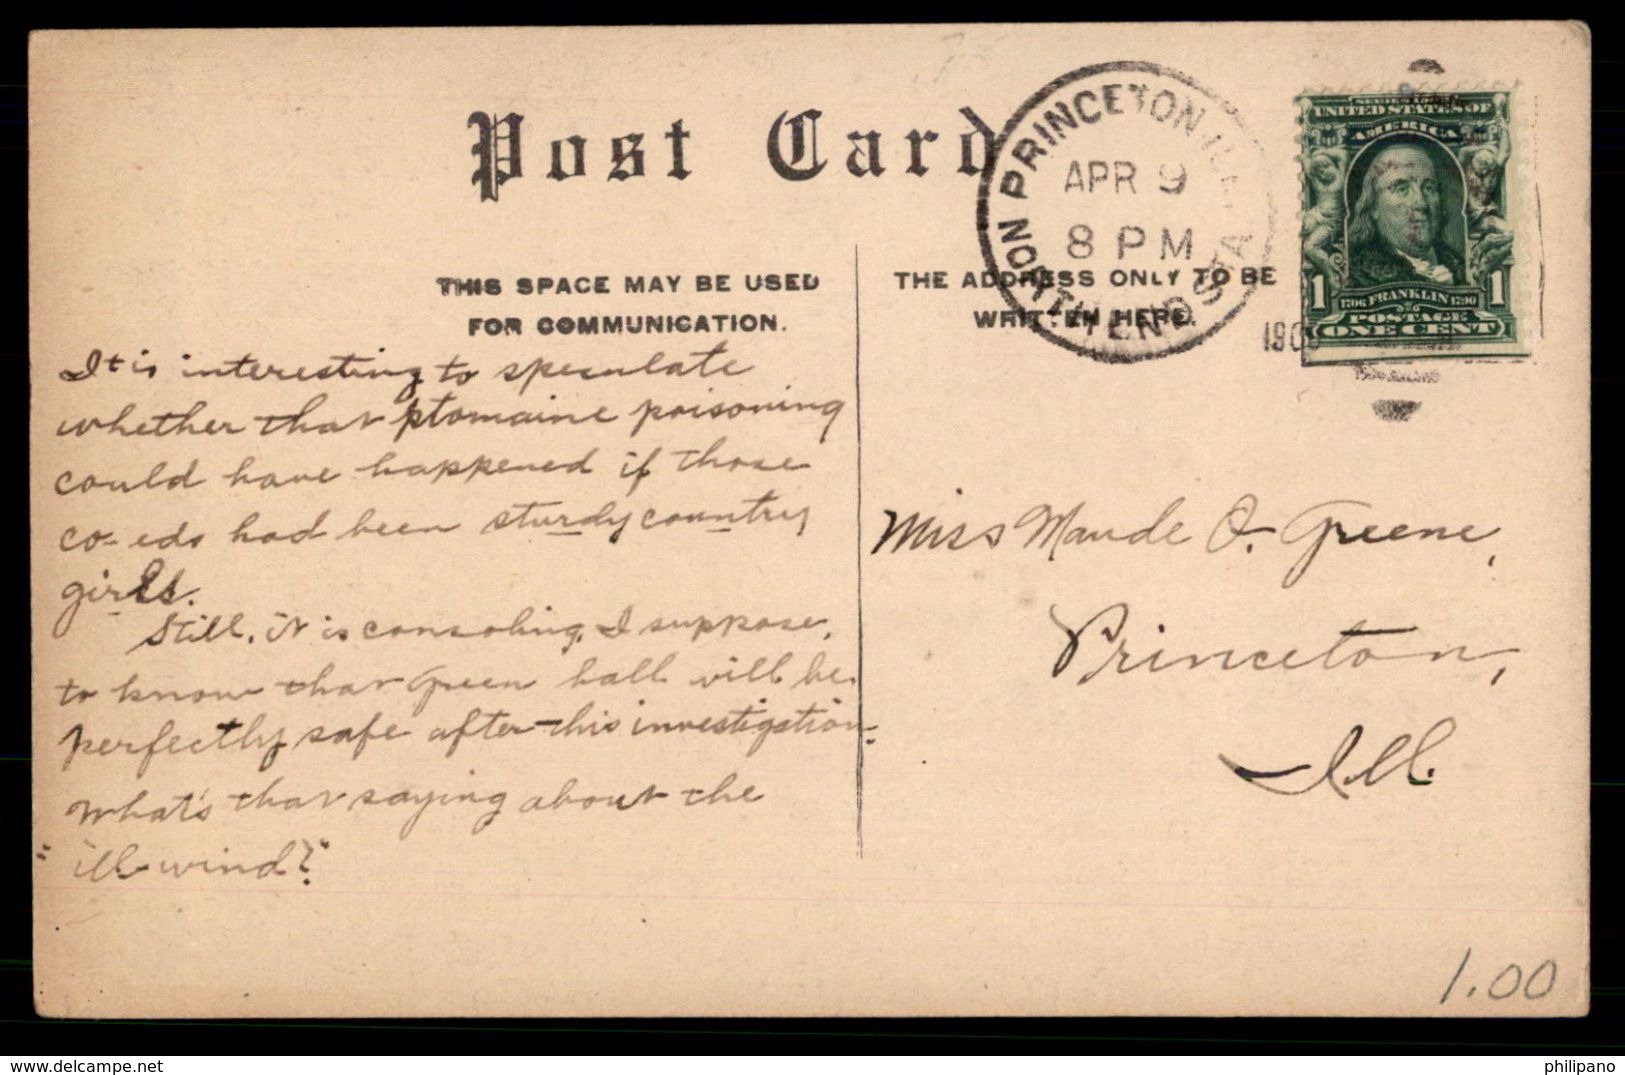 Post Card
THIS SPACE MAY BE USED
FOR COMMUNICATION.
THE ADDRESS ONLY TO BE
WRITTEN HERE.
PRINCETON, ILL.
APR 9
8 PM
NORTH END STA.
190
UNITED STATES OF
AMERICA
1 1706 FRANKLIN 1790 1
POSTAGE
ONE CENT
It is interesting to speculate
whether that ptomaine poisoning
could have happened if those
co-eds had been sturdy country
girls.
Still, it is consoling, I suppose,
to know that Green hall will be
perfectly safe after this investigation.
What's that saying about the
"ill-wind?"
Miss Maude O. Greene,
Princeton,
Ill.
1.00
https://www.delcampe.net
philipano